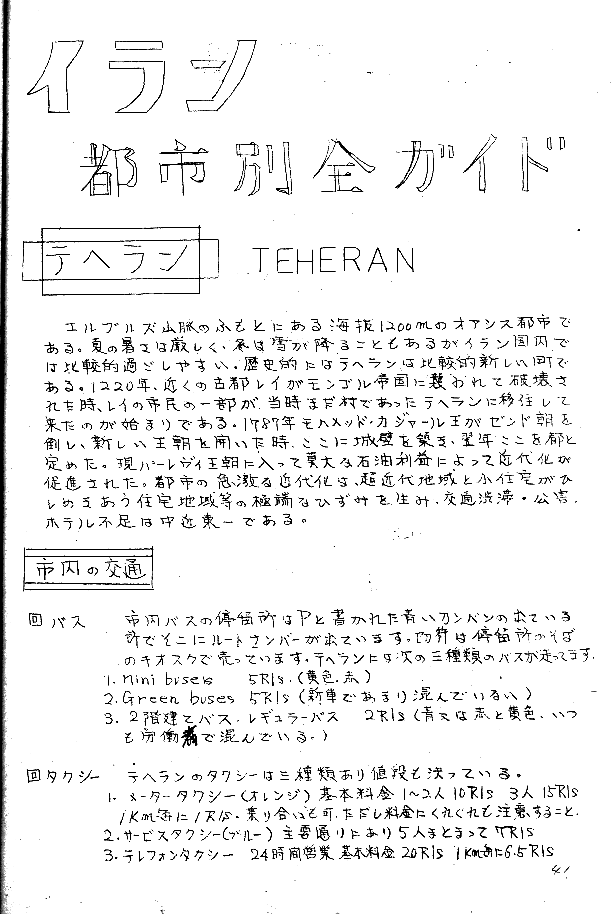 イラン
都市別全ガイド
テヘラン TEHERAN
エルブルズ山脈のふもとにある海抜1200mのオアシス都市で
ある。夏の暑さは厳しく、冬は雪が降ることもあるがイラン国内で
は比較的過ごしやすい。歴史的にはテヘランは比較的新しい町で
ある。1220年、近くの古都レイがモンゴル帝国に襲われて破壊さ
れた時、レイの市民の一部が、当時まだ村であったテヘランに移住して
来たのが始まりである。1787年モハメッド・カジャール王がゼンド朝を
倒し、新しい王朝を開いた時、ここに城壁を築き、翌年ここを都と
定めた。現パーレヴィ王朝に入って莫大な石油利益によって近代化が
促進された。都市の急激な近代化は、超近代地域と小住宅がひ
しめきあう住宅地域等の極端なひずみを生み、交通渋滞・公害、
ホテル不足は中近東一である。
市内の交通
回バス 市内バスの停留所はPと書かれた青いカンバンの出ている
所でそこにルートナンバーが出ています。切符は停留所のそば
のキオスクで売っています。テヘランには次の三種類のバスが走ってます。
1. Mini buses 5Rls.(黄色、赤)
2. Green buses 5Rls(新車であまり混んでいない)
3. 2階建てバス、レギュラーバス 2Rls(青又は赤と黄色、いつ
も労働者で混んでいる。)
回タクシー テヘランのタクシーは三種類あり値段も決っている。
1. メータータクシー(オレンジ)基本料金1〜2人10Rls 3人15Rls
1Km毎に1Rls. 乗り合いも可、ただし料金にくれぐれも注意すること。
2. サービスタクシー(ブルー)主要通りにあり5人まとまって7Rls
3. テレフォンタクシー 24時間営業 基本料金20Rls 1Km毎に6.5Rls
41